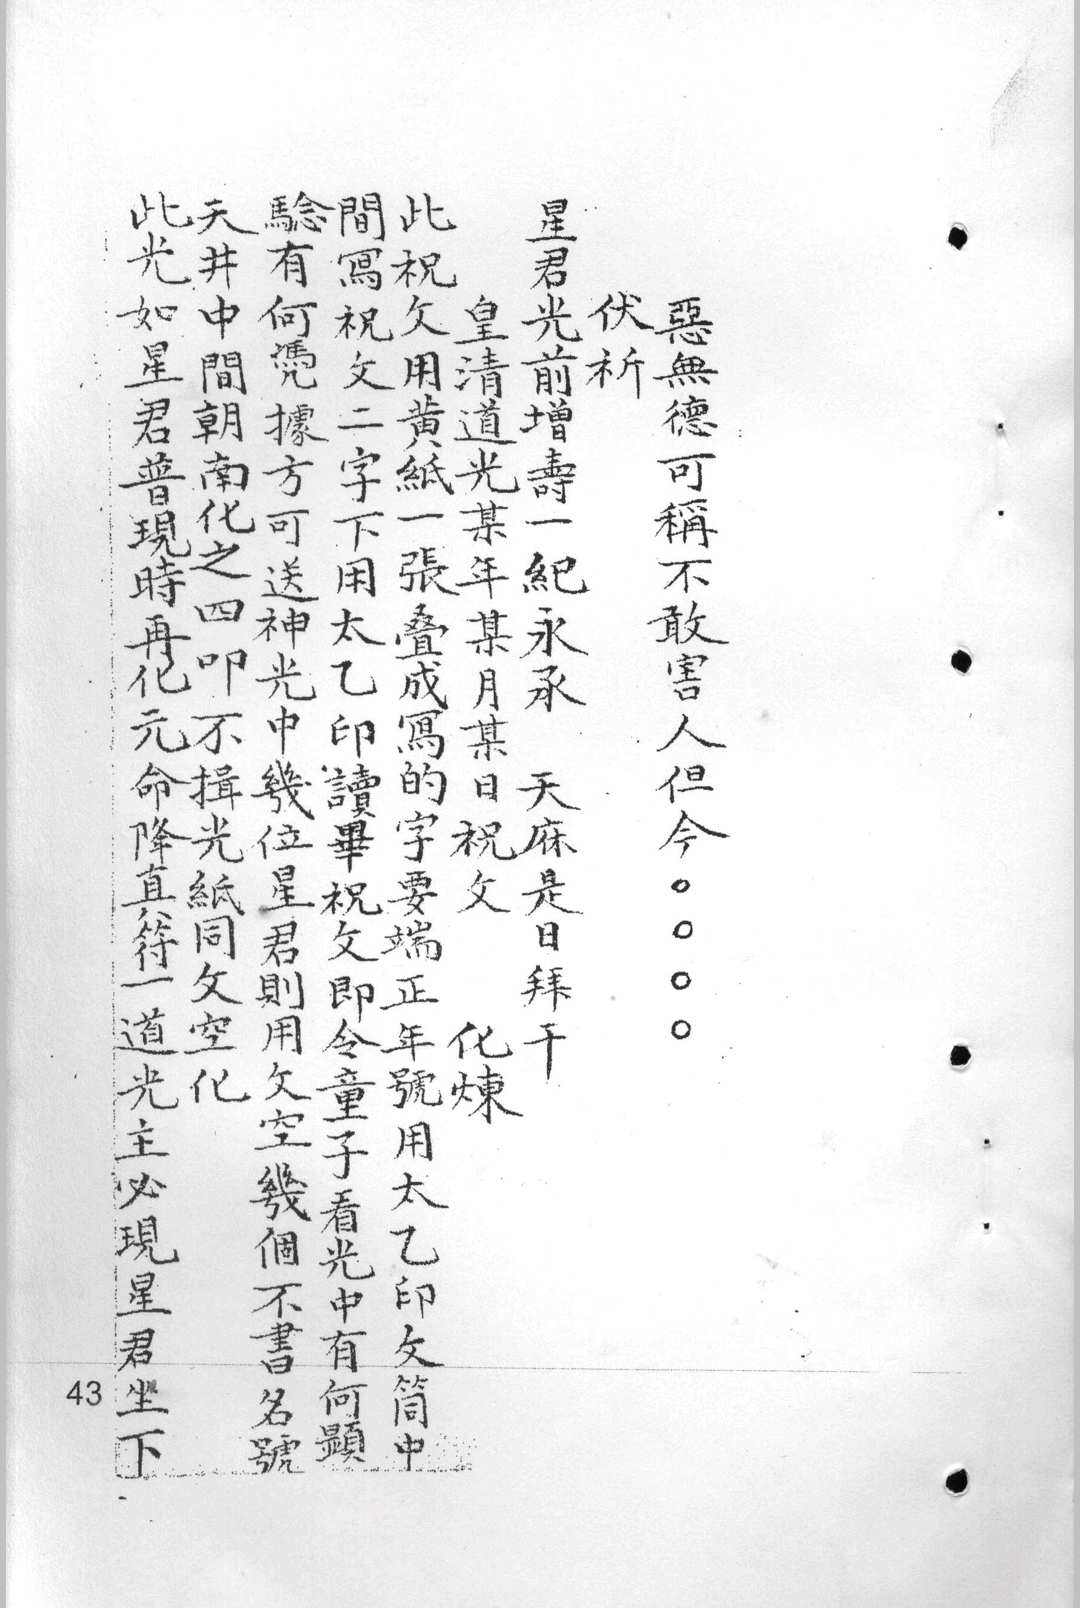 惡無德可稱不敢害人但今○○○○
伏祈
星君光前增壽一紀永承　天庥是日拜干
皇清道光某年某月某日祝文　化煉
此祝文用黄紙一張叠成寫的字要端正年號用太乙印文筒中
間寫祝文二字下用太乙印讀畢祝文即令童子看光中有何顯
驗有何憑據方可送神光中幾位星君則用文空幾個不書名號
天井中間朝南化之四叩不揖光紙同文空化
此光如星君普現時再化元命降真符一道光主必現星君坐下
43